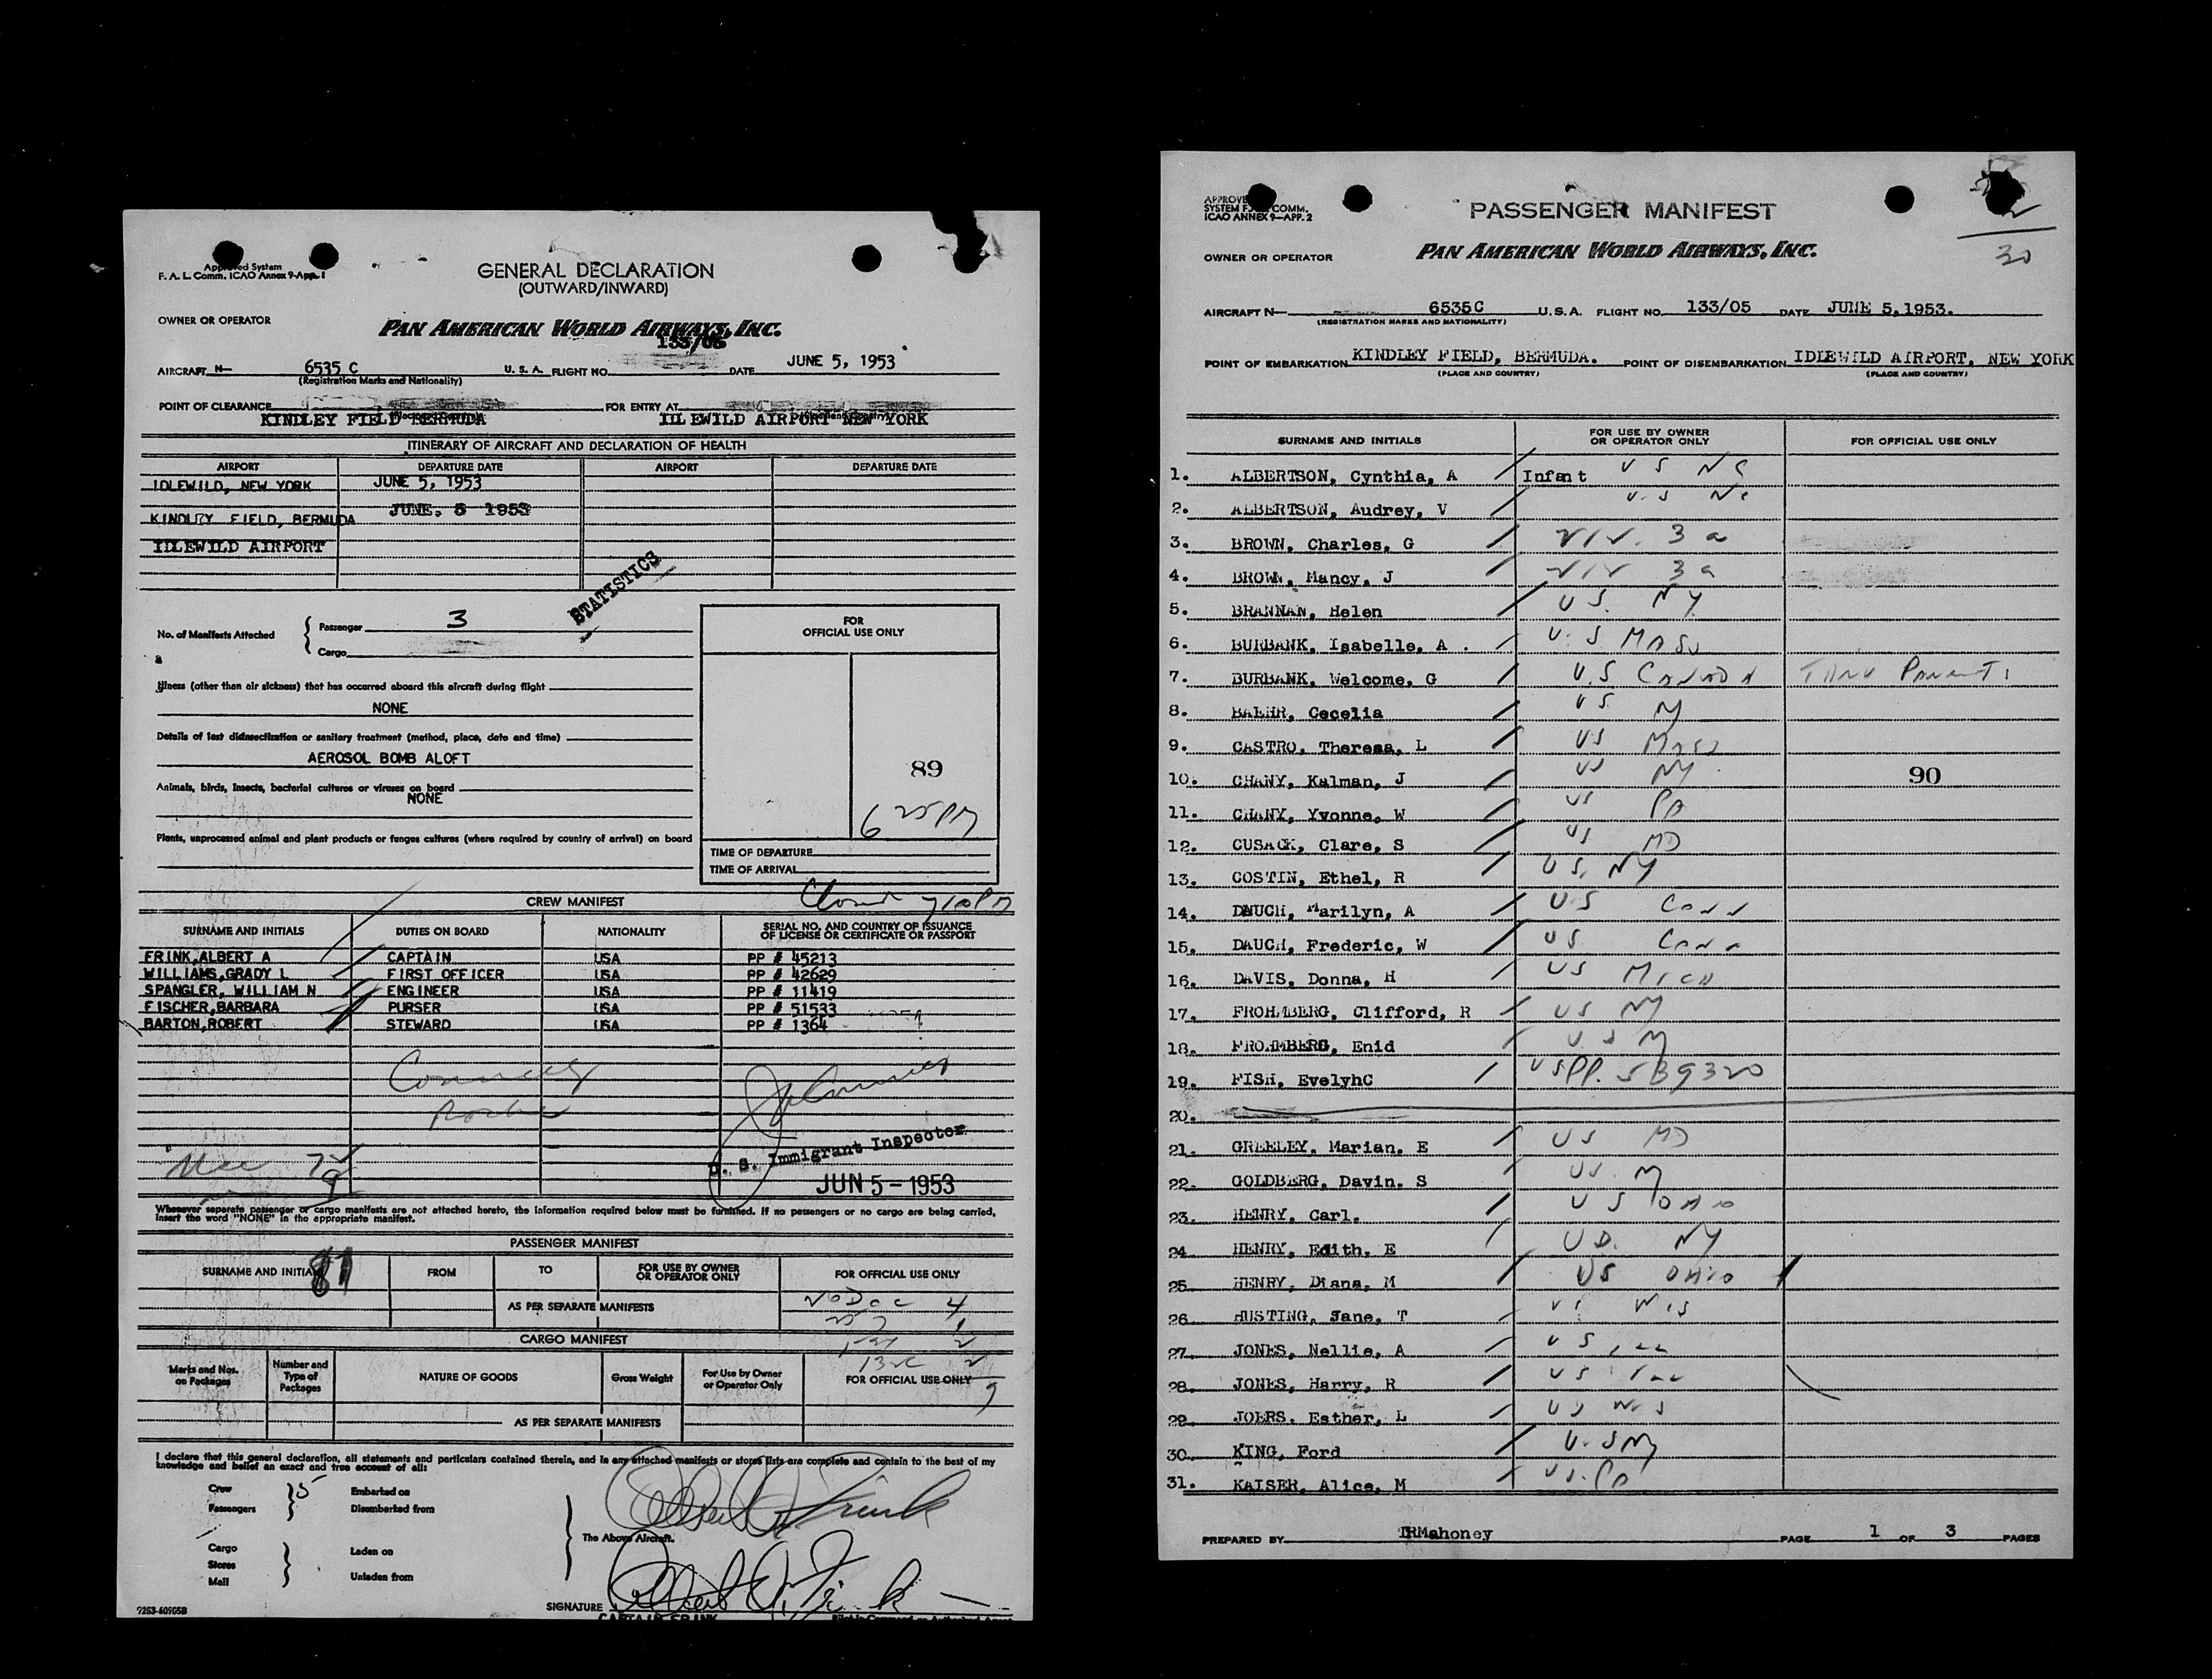 Approved System
F. A. L. Comm. ICAO Annex 9-App. 1
GENERAL DECLARATION
(OUTWARD/INWARD)
OWNER OR OPERATOR
PAN AMERICAN WORLD AIRWAYS, INC.
133/05
AIRCRAFT N— 6535 C U. S. A. FLIGHT NO. DATE JUNE 5, 1953
(Registration Marks and Nationality)
POINT OF CLEARANCE FOR ENTRY AT
KINDLEY FIELD BERMUDA IDLEWILD AIRPORT NEW YORK
ITINERARY OF AIRCRAFT AND DECLARATION OF HEALTH
AIRPORT DEPARTURE DATE AIRPORT DEPARTURE DATE
IDLEWILD, NEW YORK JUNE 5, 1953
KINDLEY FIELD, BERMUDA JUNE. 5 1953
IDLEWILD AIRPORT
STATISTICS
No. of Manifests Attached
Passenger 3
Cargo
FOR
OFFICIAL USE ONLY
Illness (other than air sickness) that has occurred aboard this aircraft during flight
NONE
Details of last disinsectization or sanitary treatment (method, place, date and time)
AEROSOL BOMB ALOFT
89
Animals, birds, insects, bacterial cultures or viruses on board
NONE
6 25 PM
Plants, unprocessed animal and plant products or fungus cultures (where required by country of arrival) on board
TIME OF DEPARTURE
TIME OF ARRIVAL
CREW MANIFEST
SURNAME AND INITIALS DUTIES ON BOARD NATIONALITY SERIAL NO. AND COUNTRY OF ISSUANCE
OF LICENSE OR CERTIFICATE OR PASSPORT
FRINK, ALBERT A CAPTAIN USA PP # 45213
WILLIAMS, GRADY L FIRST OFFICER USA PP # 42629
SPANGLER, WILLIAM N ENGINEER USA PP # 11419
FISCHER, BARBARA PURSER USA PP # 51533
BARTON, ROBERT STEWARD USA PP # 1364
U. S. Immigrant Inspector
JUN 5 - 1953
Whenever separate passenger or cargo manifests are not attached hereto, the information required below must be furnished. If no passengers or no cargo are being carried,
insert the word "NONE" in the appropriate manifest.
PASSENGER MANIFEST
SURNAME AND INITIALS FROM TO FOR USE BY OWNER
OR OPERATOR ONLY FOR OFFICIAL USE ONLY
81
AS PER SEPARATE MANIFESTS
No Doc 4
CARGO MANIFEST
Marks and Nos.
on Packages
Number and
Type of
Packages
NATURE OF GOODS
Gross Weight
For Use by Owner
or Operator Only
FOR OFFICIAL USE ONLY
9
AS PER SEPARATE MANIFESTS
I declare that this general declaration, all statements and particulars contained therein, and in any attached manifests or stores lists are complete and contain to the best of my
knowledge and belief an exact and true account of all:
Crew 5 Embarked on
Passengers Disembarked from
The Above Aircraft.
Albert A. Frink
Cargo Laden on
Stores
Mail Unladen from
SIGNATURE Albert A. Frink
CAPTAIN FRINK
7253-60905B
APPROVED
SYSTEM F. COMM.
ICAO ANNEX 9—APP. 2
PASSENGER MANIFEST
30
OWNER OR OPERATOR
PAN AMERICAN WORLD AIRWAYS, INC.
AIRCRAFT N— 6535C U.S.A. FLIGHT NO. 133/05 DATE JUNE 5, 1953.
(REGISTRATION MARKS AND NATIONALITY)
POINT OF EMBARKATION KINDLEY FIELD, BERMUDA. POINT OF DISEMBARKATION IDLEWILD AIRPORT, NEW YORK
(PLACE AND COUNTRY) (PLACE AND COUNTRY)
SURNAME AND INITIALS FOR USE BY OWNER
OR OPERATOR ONLY FOR OFFICIAL USE ONLY
1. ALBERTSON, Cynthia, A Infant US NC
2. ALBERTSON, Audrey, V US NC
3. BROWN, Charles, G 3a
4. BROWN, Mancy, J 3a
5. BRANNAN, Helen U S. NY.
6. BURBANK, Isabelle, A . U. S MASS
7. BURBANK, Welcome, G U.S CANADA THRU PARENTS
8. BAEHR, Cecelia US NY
9. CASTRO, Theresa, L US MASS
10. CHANY, Kalman, J US NY 90
11. CHANY, Yvonne, W US PA
12. CUSACK, Clare, S US MD
13. COSTIN, Ethel, R US, NY
14. DAUCH, Marilyn, A US CONN
15. DAUCH, Frederic, W US CONN
16. DAVIS, Donna, H US MICH
17. FROHMBERG, Clifford, R US NY
18. FROHMBERG, Enid US NY
19. FISH, EvelyhC USPP. 539320
20.
21. GREELEY, Marian, E US MD
22. GOLDBERG, Davin. S US. NY
23. HENRY, Carl. US OHIO
24 HENRY, Edith, E US. NY
25 HENRY, Diana, M US OHIO
26 HUSTING, Jane, T US WIS
27. JONES, Nellie, A US ILL
28. JONES, Harry, R US ILL
29. JOERS. Esther, L US WIS
30. KING, Ford U. S NY
31. KAISER, Alice, M US. PA
PREPARED BY IRMahoney PAGE 1 OF 3 PAGES